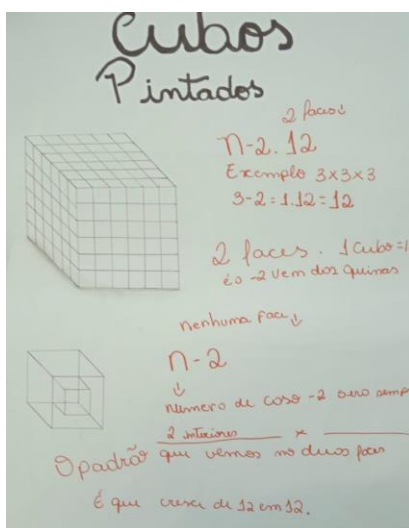 Cubos
Pintados
2 faces↓
n-2.12
Exemplo 3x3x3
3-2=1.12=12
2 faces. 1 cubo=1
é o -2 vem dos quinas
nenhuma face↓
n-2
↓
número de -2
2 interiores x
O padrão que vemos no duas faces
É que cresce de 12 em 12.